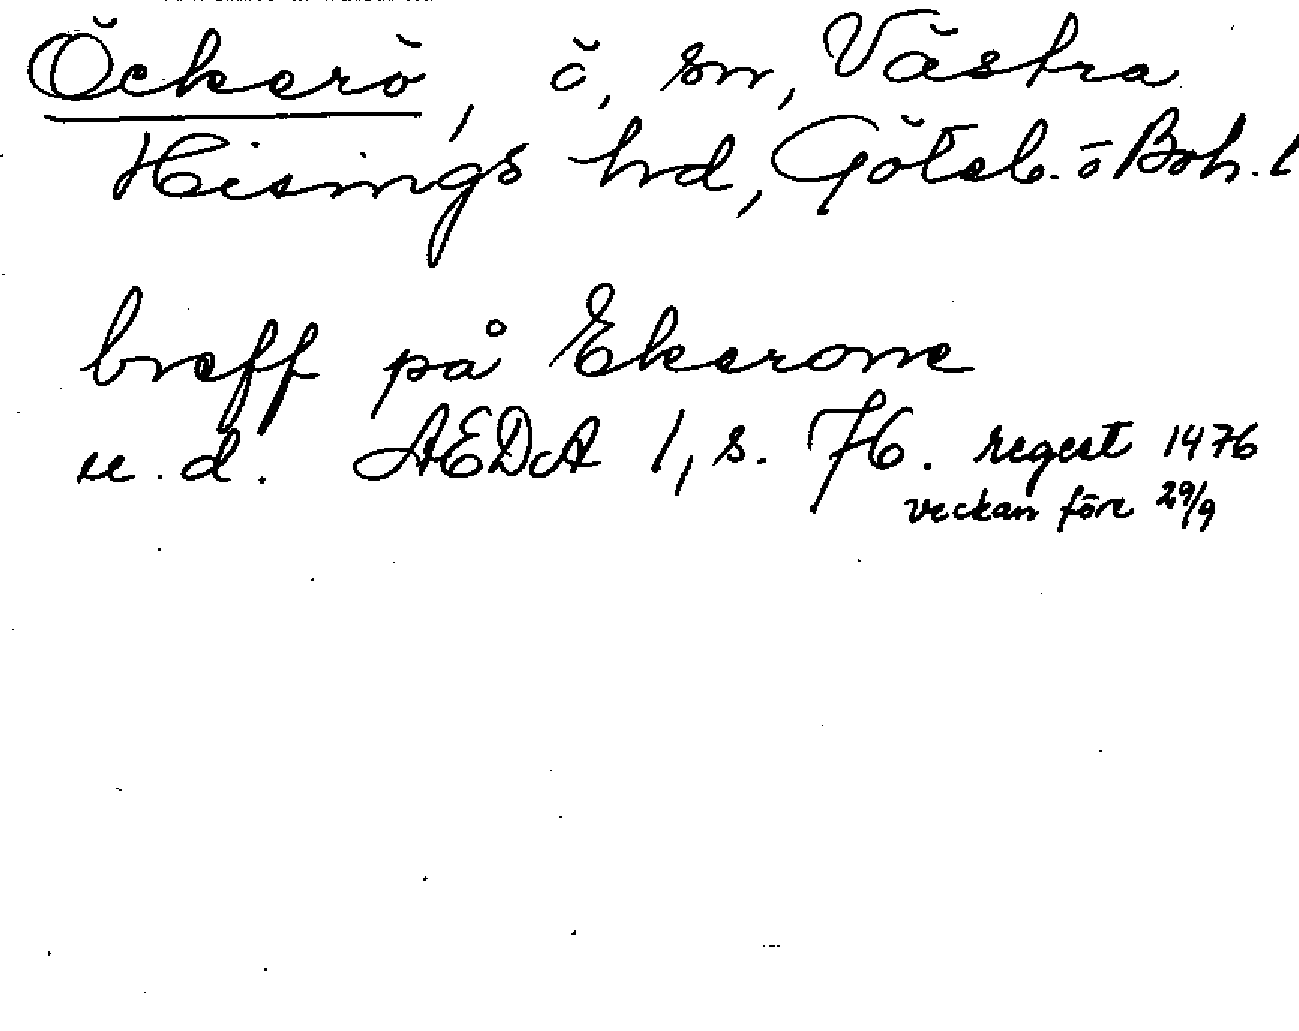 Öckerö, ö, sn, Västra
Hisings hd, Göteb. o Boh. l
breff på Ekerøne
u.d. AEDA 1, s. 76. regest 1476
veckan före 29/9